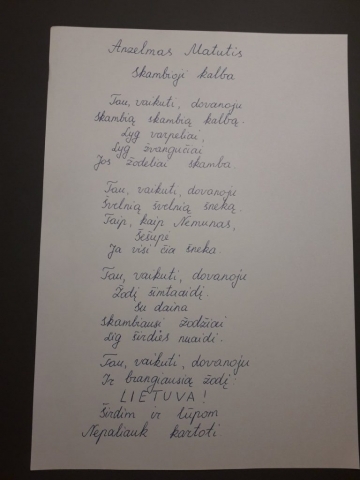 Anzelmas Matutis
Skambioji kalba
Tau, vaikuti, dovanoju
Skambią skambią kalbą.
Lyg varpeliai,
Lyg žvangučiai
Jos žodeliai skamba
Tau, vaikuti, dovanoju
Švelnią švelnią šneką.
Taip, kaip Nemunas,
Šešupė
Ja visi čia šneka.
Tau, vaikuti, dovanoju
Žodį šimtaaidį.
Su daina
skambiausi žodžiai
Lig širdies nuaidi.
Tau, vaikuti, dovanoju
Ir brangiausią žodį:
LIETUVA!
Širdim ir lūpom
Nepaliauk kartoti